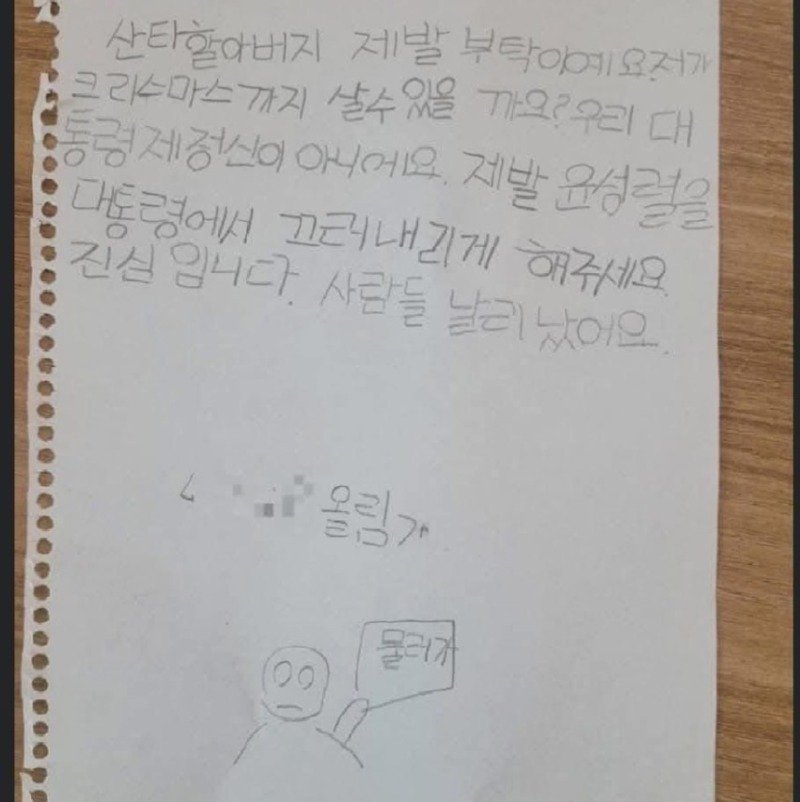 산타할아버지 제발 부탁이예요.저가
크리수마스까지 살수있을 까요?우리 대
통령제정신이 아니에요. 제발 윤성렬을
대통령에서 끄러내리게 해주세요.
진실 입니다. 사람들 날리났어요.
올림
물러가